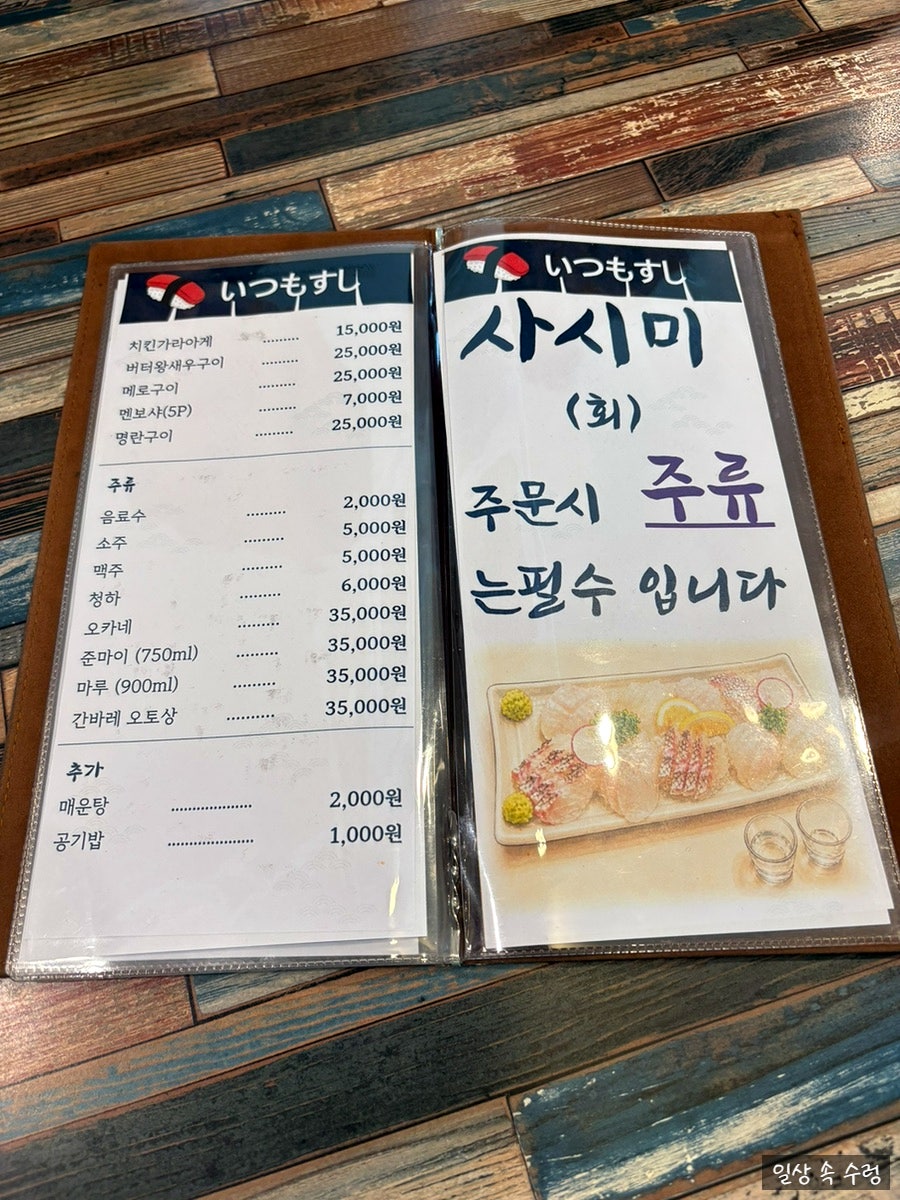 いつもすし
치킨가라아게 ......... 15,000원
버터왕새우구이 ......... 25,000원
메로구이 ......... 25,000원
멘보샤(5P) ......... 7,000원
명란구이 ......... 25,000원
주류
음료수 ......... 2,000원
소주 ......... 5,000원
맥주 ......... 5,000원
청하 ......... 6,000원
오카네 ......... 35,000원
준마이 (750ml) ......... 35,000원
마루 (900ml) ......... 35,000원
간바레 오토상 .......... 35,000원
추가
매운탕 ................... 2,000원
공기밥 .................... 1,000원
いつもすし
사시미
(회)
주문시 주류
는필수 입니다
일상 속 수렁